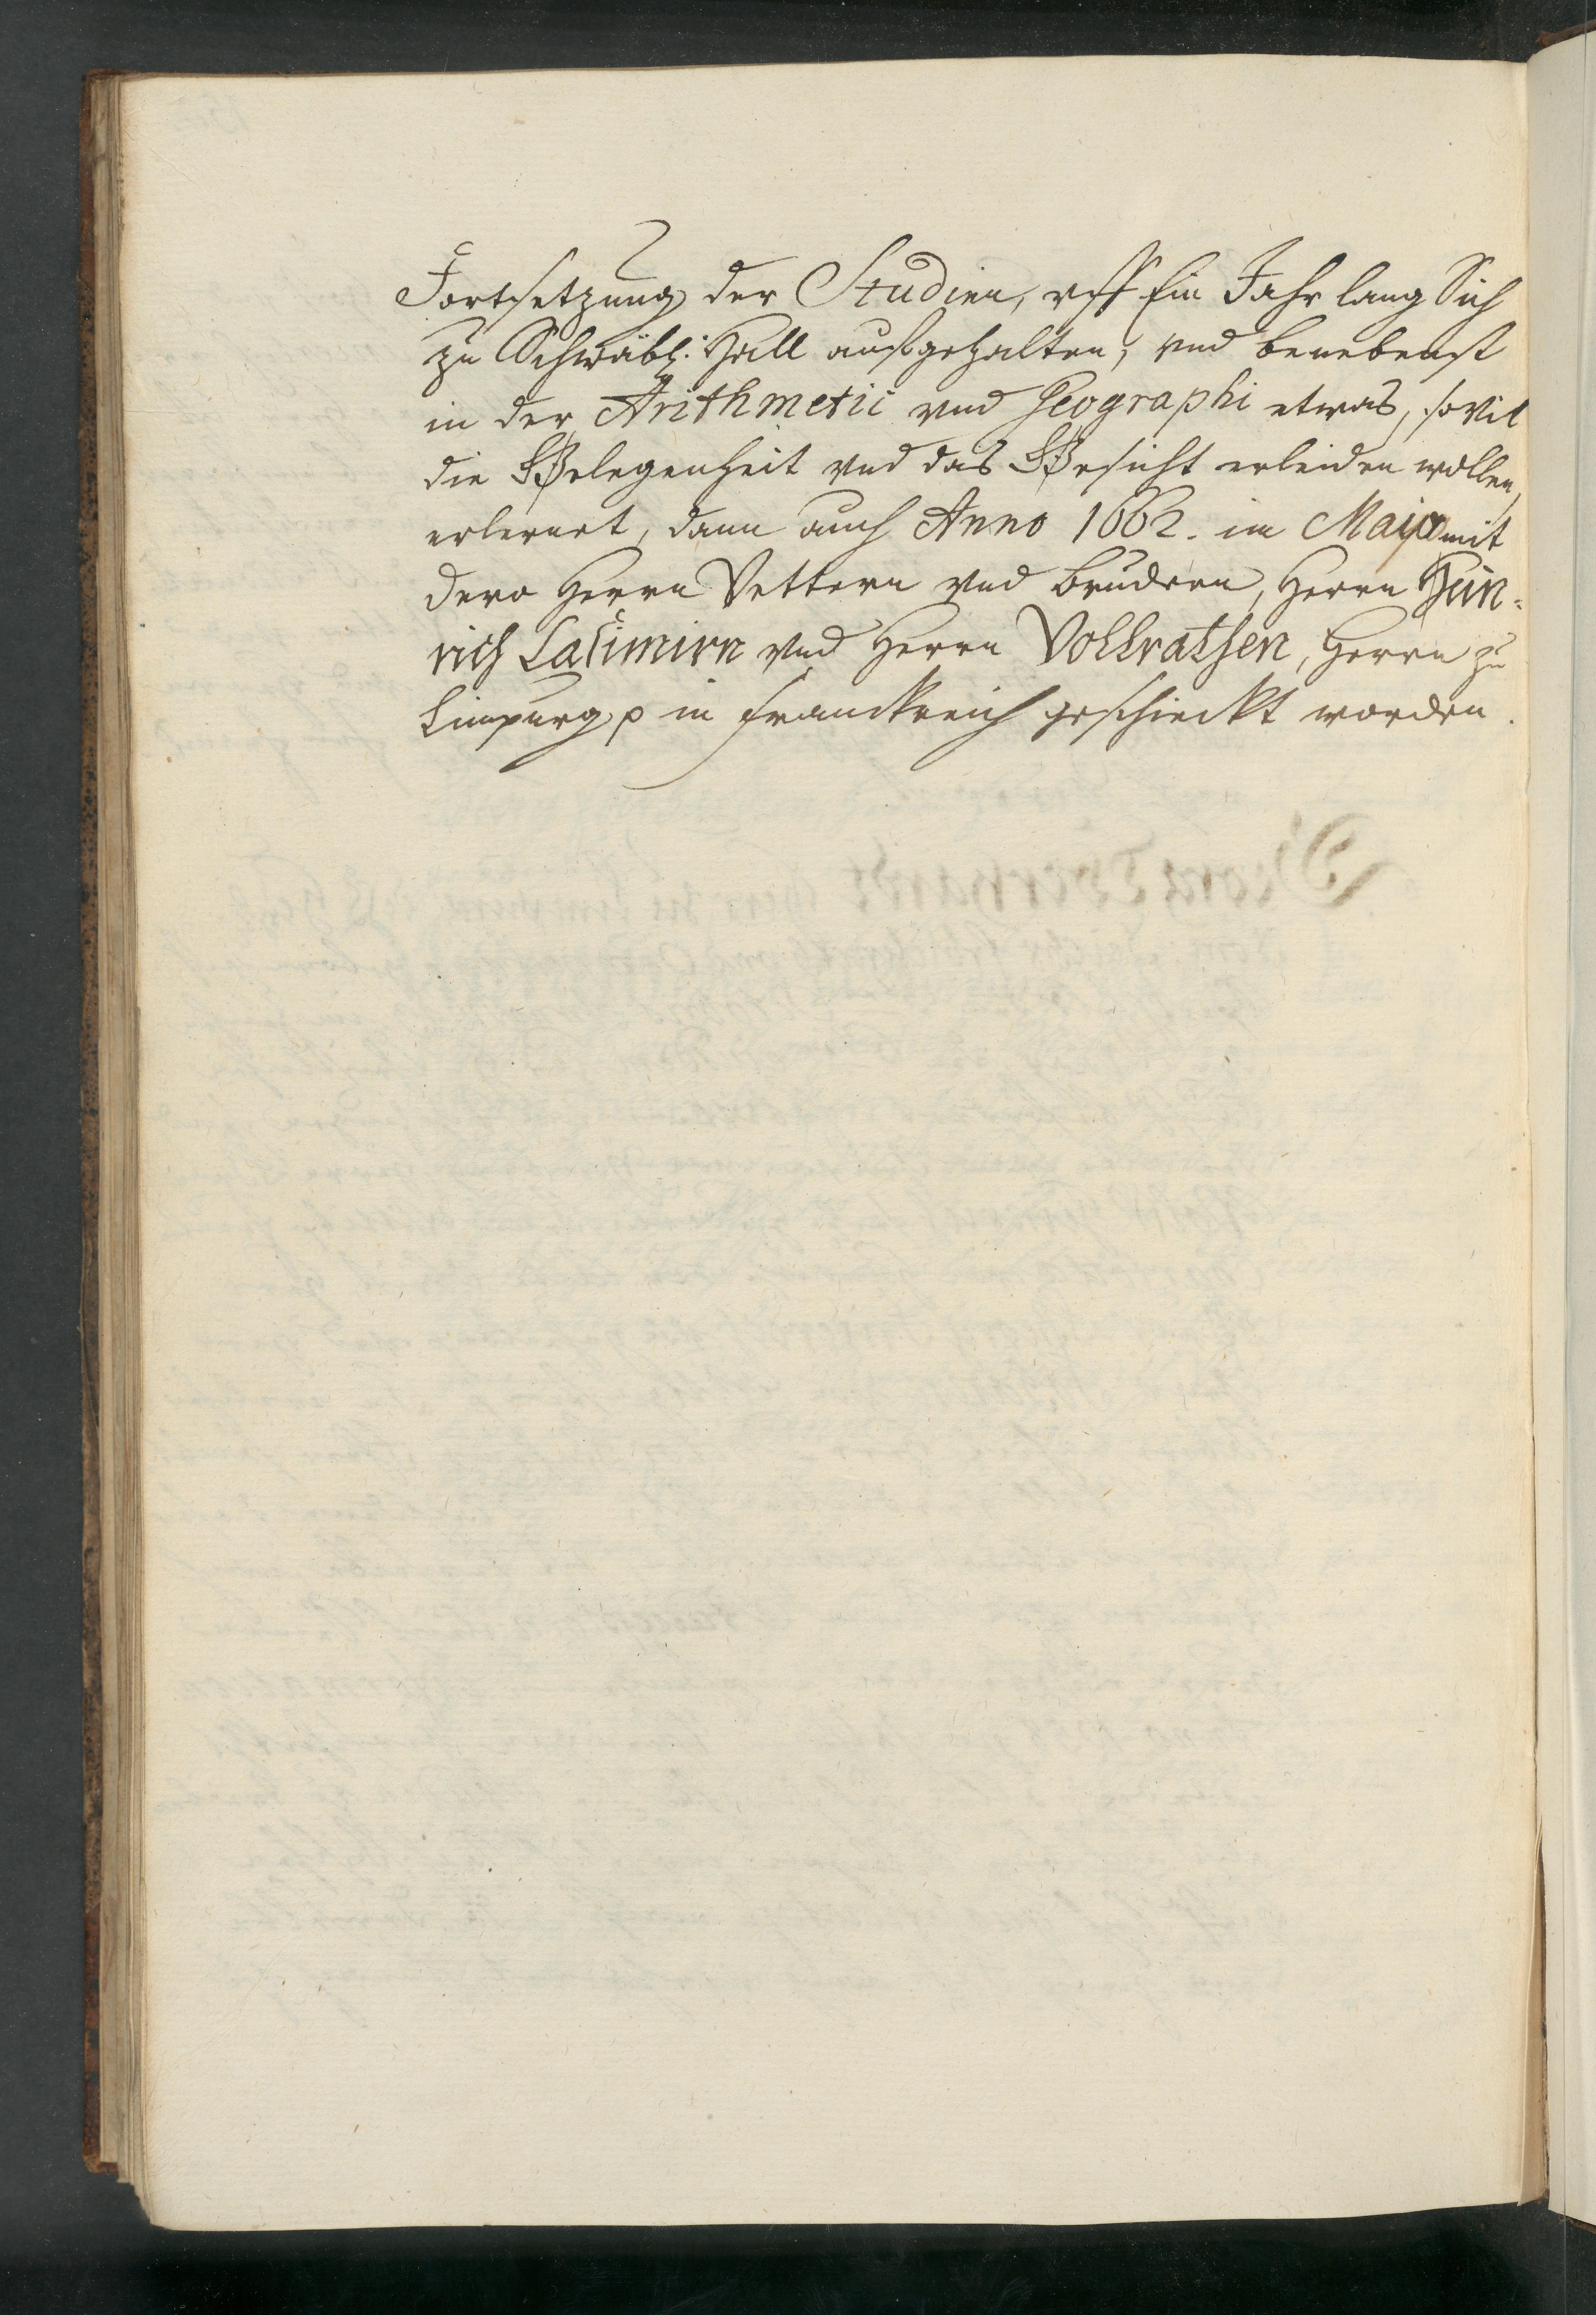 Fortsetzung der Studien, uff Ein Jahr lang Sich
zu Schwäbl: Hall auffgehalten, vnd benebenst
in der Arithmetic vnd Geographi etwas, so vil
die Gelegenheit vnd das Gesicht erleiden wollen,
erlernet, dann auch Anno 1662. im Majo mit
dero Herrn Vettern vnd Brudern, Herrn Hein-
rich Casimirn vnd Herrn Vollrathen, Herrn zu
Limpurg p in Franckreich geschickt worden.